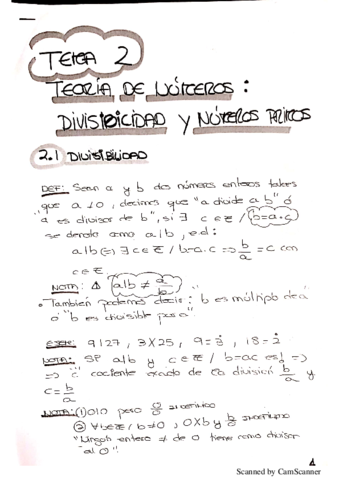 TEMA 2
TEORÍA DE NÚMEROS:
DIVISIBILIDAD Y NÚMEROS PRIMOS
2.1 DIVISIBILIDAD
DEF: Sean a y b dos números enteros tales
que a ≠ 0, decimos que "a divide a b" ó
"a es divisor de b", si ∃ c ∈ ℤ / b=a·c
se denota como a|b, e.d:
a|b ⇔ ∃ c ∈ ℤ / b=a·c ⇒ b/a = c con
c ∈ ℤ.
NOTA: ⚠ a|b ≠ a/b
• También podemos decir: b es múltiplo de a
ó "b es divisible por a"
EJEM: 9|27, 3∤25, 9 = 3̇, 18 = 2̇
NOTA: SP a|b y c ∈ ℤ / b=ac es! ⇒
⇒ c cociente exacto de la división b/a y
c = b/a
NOTA: (1) 0|0 pero 0/0 indefinido
(2) ∀b∈ℤ / b≠0, 0∤b y b/0 indefinido
"Ningún entero ≠ de 0 tiene como divisor
al 0".
1
Scanned by CamScanner